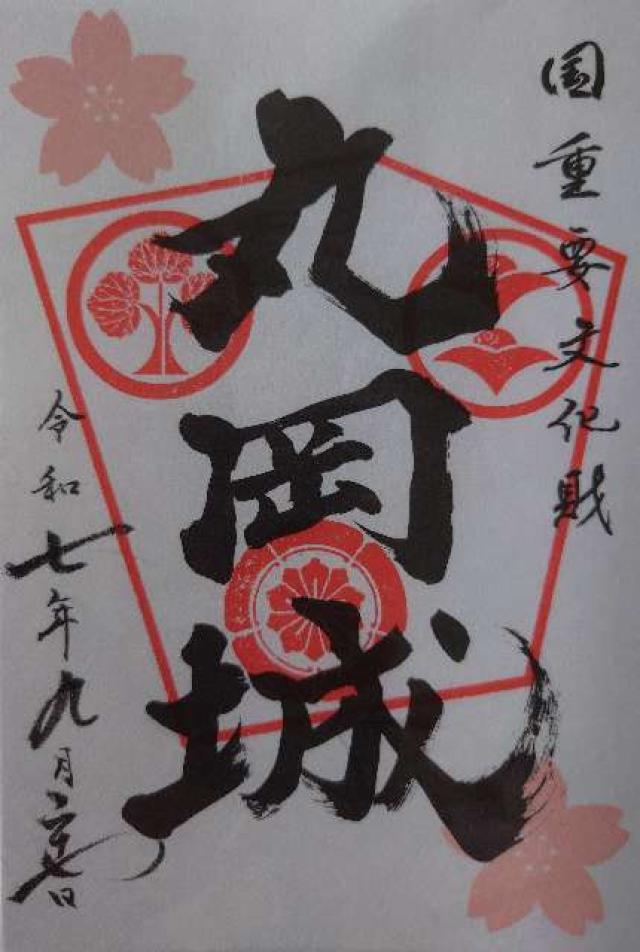 国重要文化財
丸岡城
令和七年九月二十七日